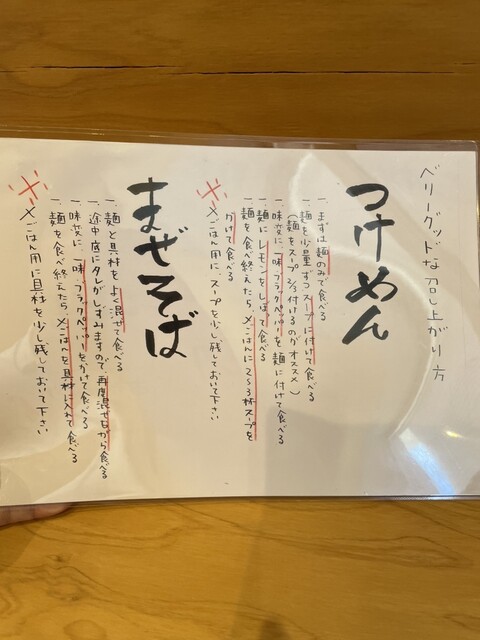 ベリーグッドな召し上がり方
つけめん
一、まずは麺のみで食べる
一、麺を少量ずつスープに付けて食べる
(麺をスープ2/3付けるのがオススメ)
一、味変に、一味・ブラックペッパーを麺に付けて食べる
一、麺にレモンをしぼって食べる
一、麺を食べ終えたら、〆ごはんに2〜3杯スープを
かけて食べる
※〆ごはん用に、スープを少し残しておいて下さい
まぜそば
一、麺と具材をよく混ぜて食べる
一、途中底にタレがしずみますので、再度混ぜながら食べる
一、味変に、一味・ブラックペッパーをかけて食べる
一、麺を食べ終えたら、〆ごはんを具材に入れて食べる
※〆ごはん用に具材を少し残しておいて下さい